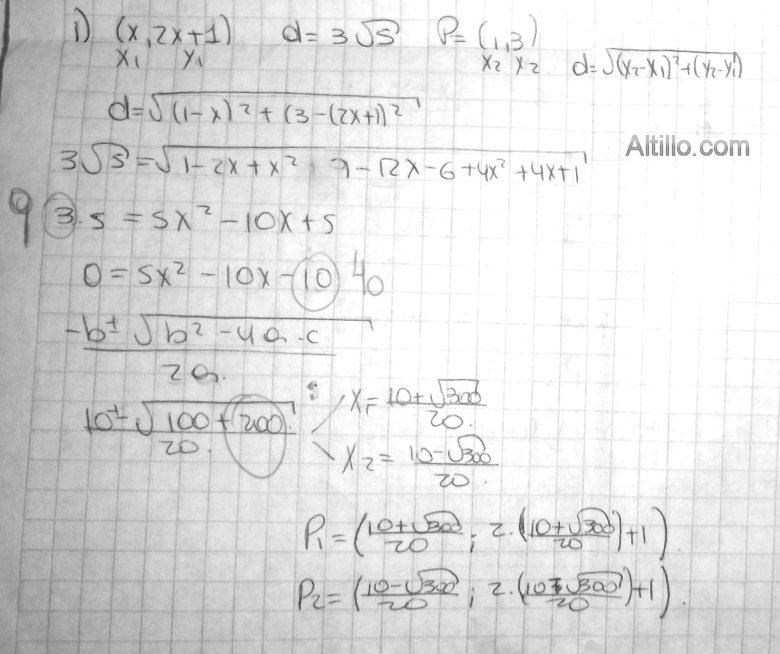 i) (x, 2x+1) d = 3√5 P = (1,3)
x₁ y₁ x₂ x₂ d=√(x₂-x₁)²+(y₂-y₁)
d=√(1-x)²+(3-(2x+1)²
Altillo.com
3√5=√1-2x+x² 9-12x-6+4x²+4x+1
9 3.5 = 5x²-10x+5
0 = 5x²-10x-10 40
-b±√b²-4a.c
2a.
10±√100+200 : x₁=10+√300
20. 20.
x₂=10-√300
20.
P₁=(10+√300 ; 2.(10+√300)+1)
20 20
P₂=(10-√300 ; 2.(10-√300)+1).
20 20